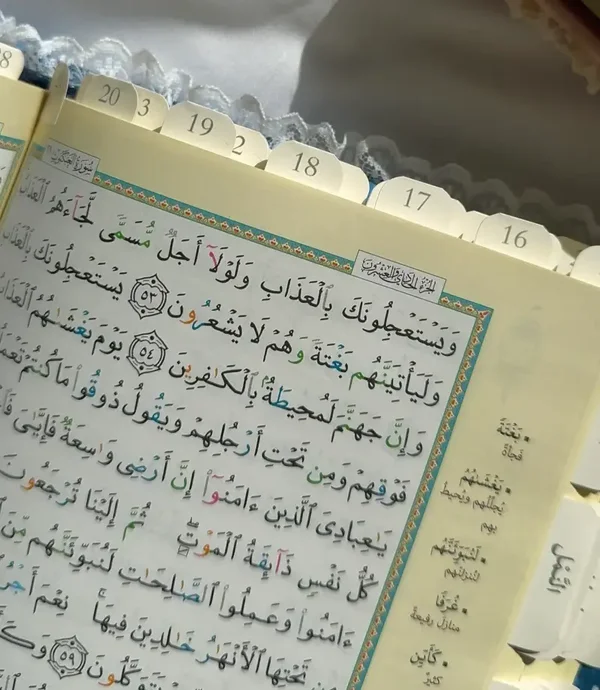 20
3
19
2
18
17
16
سُورَةُ العَنكَبُوتِ
الجُزءُ الحَادِي وَالعِشْرُونَ
وَيَسْتَعْجِلُونَكَ بِٱلْعَذَابِ وَلَوْلَآ أَجَلٌ مُّسَمًّى لَّجَآءَهُمُ ٱلْعَذَابُ
وَلَيَأْتِيَنَّهُم بَغْتَةً وَهُمْ لَا يَشْعُرُونَ ٥٣ يَسْتَعْجِلُونَكَ بِٱلْعَذَابِ
وَإِنَّ جَهَنَّمَ لَمُحِيطَةٌۢ بِٱلْكَٰفِرِينَ ٥٤ يَوْمَ يَغْشَىٰهُمُ ٱلْعَذَابُ
فَوْقِهِمْ وَمِن تَحْتِ أَرْجُلِهِمْ وَيَقُولُ ذُوقُوا۟ مَا كُنتُمْ
يَٰعِبَادِىَ ٱلَّذِينَ ءَامَنُوٓا۟ إِنَّ أَرْضِى وَٰسِعَةٌ فَإِيَّٰىَ
كُلُّ نَفْسٍ ذَآئِقَةُ ٱلْمَوْتِ ۖ ثُمَّ إِلَيْنَا تُرْجَعُونَ
ءَامَنُوا۟ وَعَمِلُوا۟ ٱلصَّٰلِحَٰتِ لَنُبَوِّئَنَّهُم مِّنَ
تَحْتِهَا ٱلْأَنْهَٰرُ خَٰلِدِينَ فِيهَا ۚ نِعْمَ أَجْرُ
يَتَوَكَّلُونَ ٥٩
• بَغْتَةً
فَجْأَةً
• يَغْشَىٰهُمُ
يُجَلِّلُهُم وَيُحِيطُ
بِهِم
• لَنُبَوِّئَنَّهُم
لَنُنزِلَنَّهُم
• غُرَفًا
مَنَازِلَ رَفِيعَةً
• كَأَيِّن
كَثِيرٌ
النَّمْل